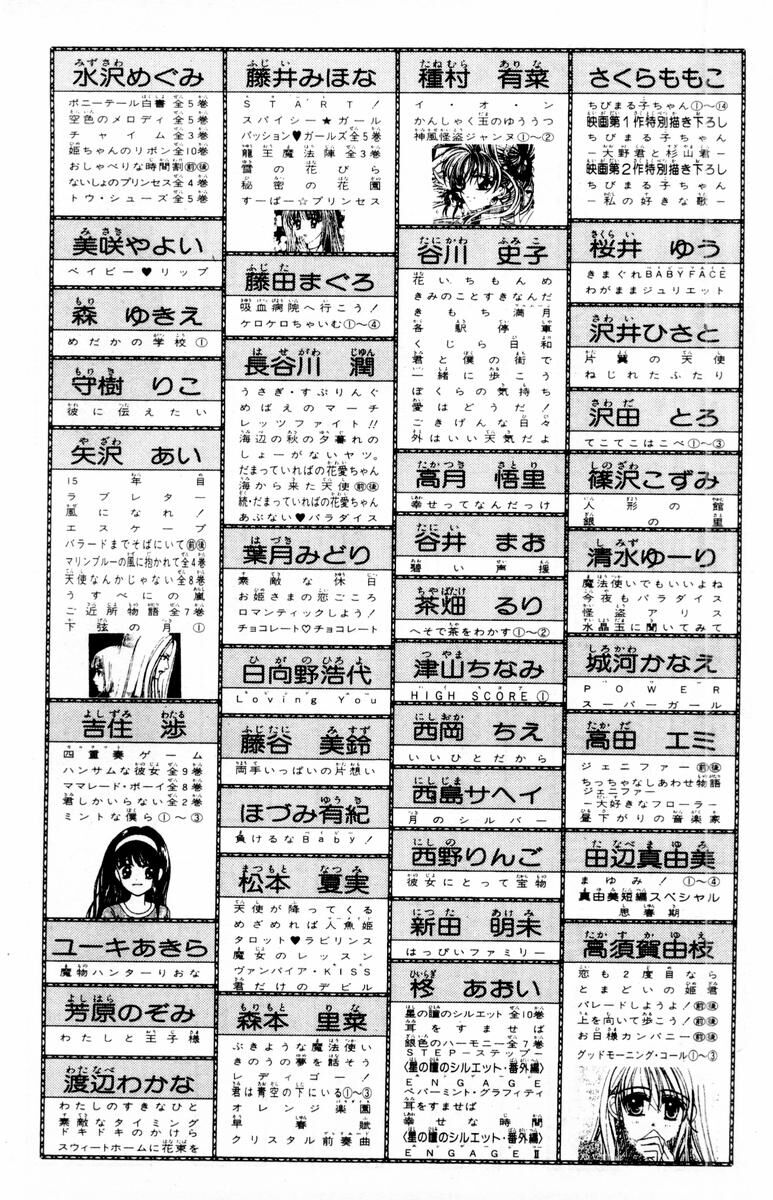 さくらももこ
ちびまる子ちゃん①～⑭
映画第1作特別描き下ろし
ちびまる子ちゃん
－大野君と杉山君－
映画第2作特別描き下ろし
ちびまる子ちゃん
－私の好きな歌－
桜井 ゆう
きまぐれBABY FACE
わがままジュリエット
沢井ひさと
片翼の天使
ねじれたふたり
沢田 とろ
てこてこはこべ①～③
篠沢こずみ
人形の館
銀の里
清水ゆーり
魔法使いでもいいよね
今夜もパラダイス
怪盗アリス
水晶玉に聞いてみて
城河かなえ
POWER
スーパーガール
高田 エミ
ジェニファー前後
ちっちゃなしあわせ物語
ジェニファー
－大好きなフローラ－
昼下がりの音楽家
田辺真由美
まゆみ！①～④
真由美短編スペシャル
思春期
高須賀由枝
恋も2度目なら
とまどいの姫君
パレードしようよ！前後
上を向いて歩こう！前後
お日様カンパニー前後
グッドモーニング・コール①～③
種村 有菜
イ・オ・ン
かんしゃく玉のゆううつ
神風怪盗ジャンヌ①～②
谷川 史子
花いちもんめ
きみのことすきなんだ
きもち満月
各駅停車
くじら日和
君と僕の街で
一緒に歩こう
ぼくらの気持ち
愛はどうだ！
ごきげんな日々
外はいい天気だよ
高月 悟里
幸せってなんだっけ
谷井 まお
碧い声援
茶畑 るり
へそで茶をわかす①～②
津山ちなみ
HIGH SCORE①
西岡 ちえ
いいひとだから
西島サヘイ
月のシルバー
西野りんご
彼女にとって宝物
新田 明未
はっぴいファミリー
柊 あおい
星の瞳のシルエット 全10巻
耳をすませば
銀色のハーモニー全7巻
STEP－ステップ－
〈星の瞳のシルエット・番外編〉
ENGAGE
ペパーミント・グラフィティ
耳をすませば
幸せな時間
〈星の瞳のシルエット・番外編〉
ENGAGEⅡ
藤井みほな
START！
スパイシー★ガール
パッション♥ガールズ全5巻
龍王魔法陣 全3巻
雪の花びら
秘密の花園
すーぱー☆プリンセス
藤田まぐろ
吸血病院へ行こう！
ケロケロちゃいむ①～④
長谷川 潤
うさぎ・すぷりんぐ
めばえのマーチ
レッツファイト!!
海辺の秋の夕暮れの
しょーがないヤツ。
だまっていればの花愛ちゃん
海から来た天使前後
続・だまっていればの花愛ちゃん
あぶない♥パラダイス
葉月みどり
素敵な休日
お姫さまの恋ごころ
ロマンティックしよう！
チョコレート♡チョコレート
日向野浩代
Loving You
藤谷 美鈴
両手いっぱいの片想い
ほづみ有紀
負けるなBaby！
松本 夏実
天使が降ってくる
めざめれば人魚姫
タロット♥ラビリンス
魔女のレッスン
ヴァンパイア・KISS
君だけのデビル
森本 里菜
ぶきような魔法使い
きのうの夢を話そう
レディゴー！
君は青空の下にいる①～③
オレンジ楽園
早春賦
クリスタル前奏曲
水沢めぐみ
ポニーテール白書 全5巻
空色のメロディ 全5巻
チャイム 全3巻
姫ちゃんのリボン 全10巻
おしゃべりな時間割前後
ないしょのプリンセス 全4巻
トウ・シューズ 全5巻
美咲やよい
ベイビー♥リップ
森 ゆきえ
めだかの学校①
守樹 りこ
彼に伝えたい
矢沢 あい
15年目
ラブレター
風になれ！
エスケープ
バラードまでそばにいて前後
マリンブルーの風に抱かれて全4巻
天使なんかじゃない全8巻
うすべにの嵐
ご近所物語 全7巻
下弦の月①
吉住 渉
四重奏ゲーム
ハンサムな彼女 全9巻
ママレード・ボーイ 全8巻
君しかいらない 全2巻
ミントな僕ら①～③
ユーキあきら
魔物ハンターりおな
芳原のぞみ
わたしと王子様
渡辺わかな
わたしのすきなひと
素敵なタイミング
ドキドキのかけら
スウィートホームに花束を